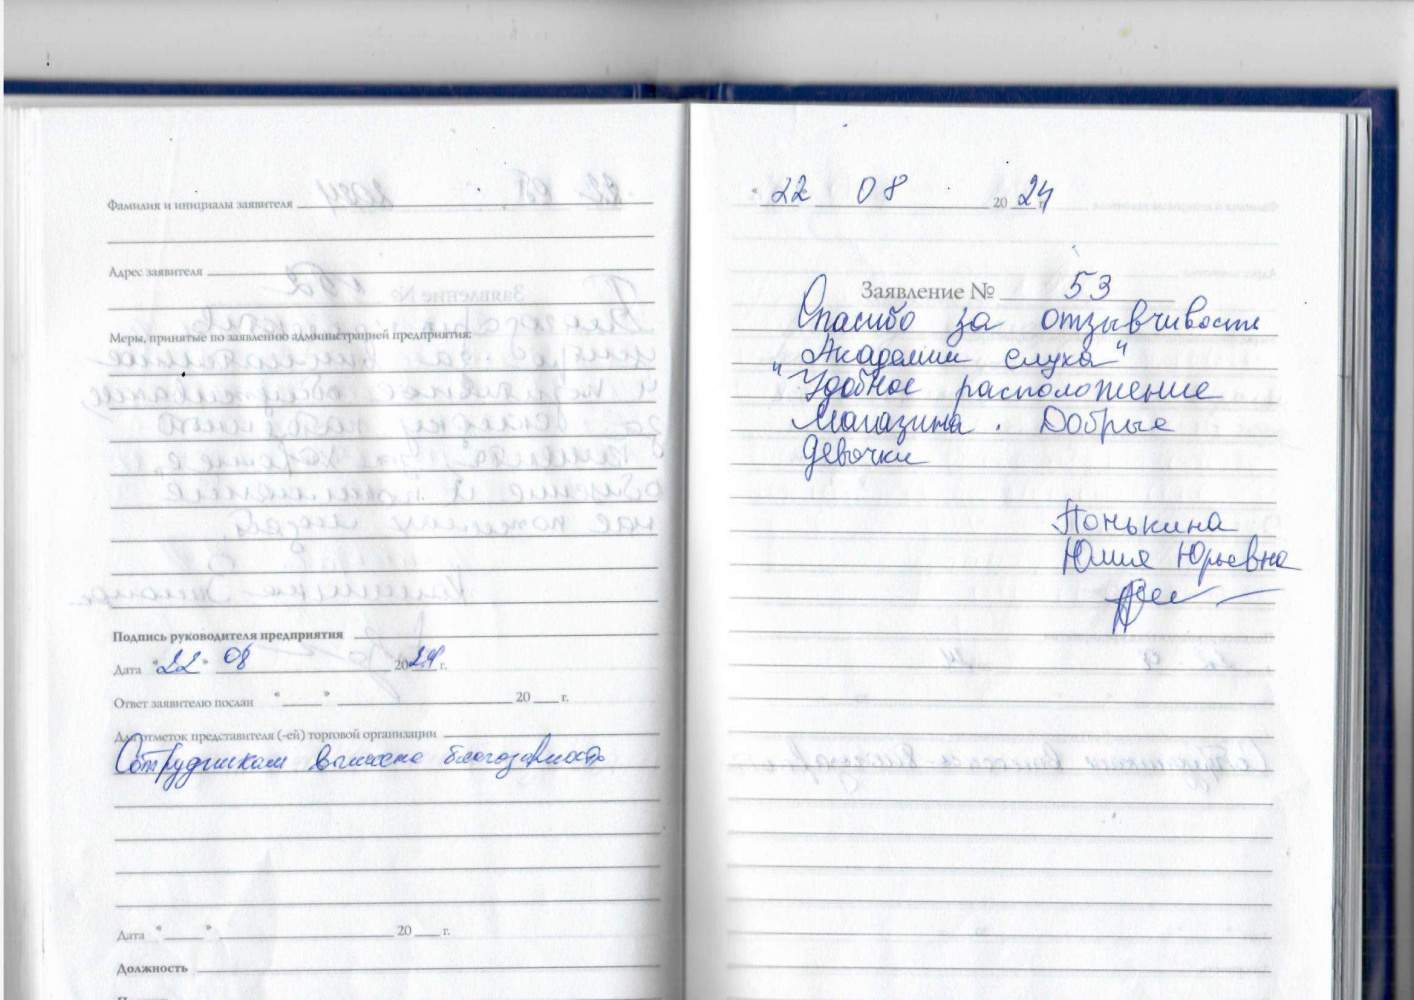 Фамилия и инициалы заявителя
Адрес заявителя
Меры, принятые по заявлению администрацией предприятия:
Подпись руководителя предприятия
Дата "22" 08 2024 г.
Ответ заявителю послан " " 20 г.
Для отметок представителя (-ей) торговой организации
Сотрудникам вынесена благодарность
Дата " " 20 г.
Должность
22 08 2024
Заявление № 53
Спасибо за отзывчивость
"Академии слуха"
Удобное расположение
магазина. Добрые
девочки
Понькина
Юлия Юрьевна